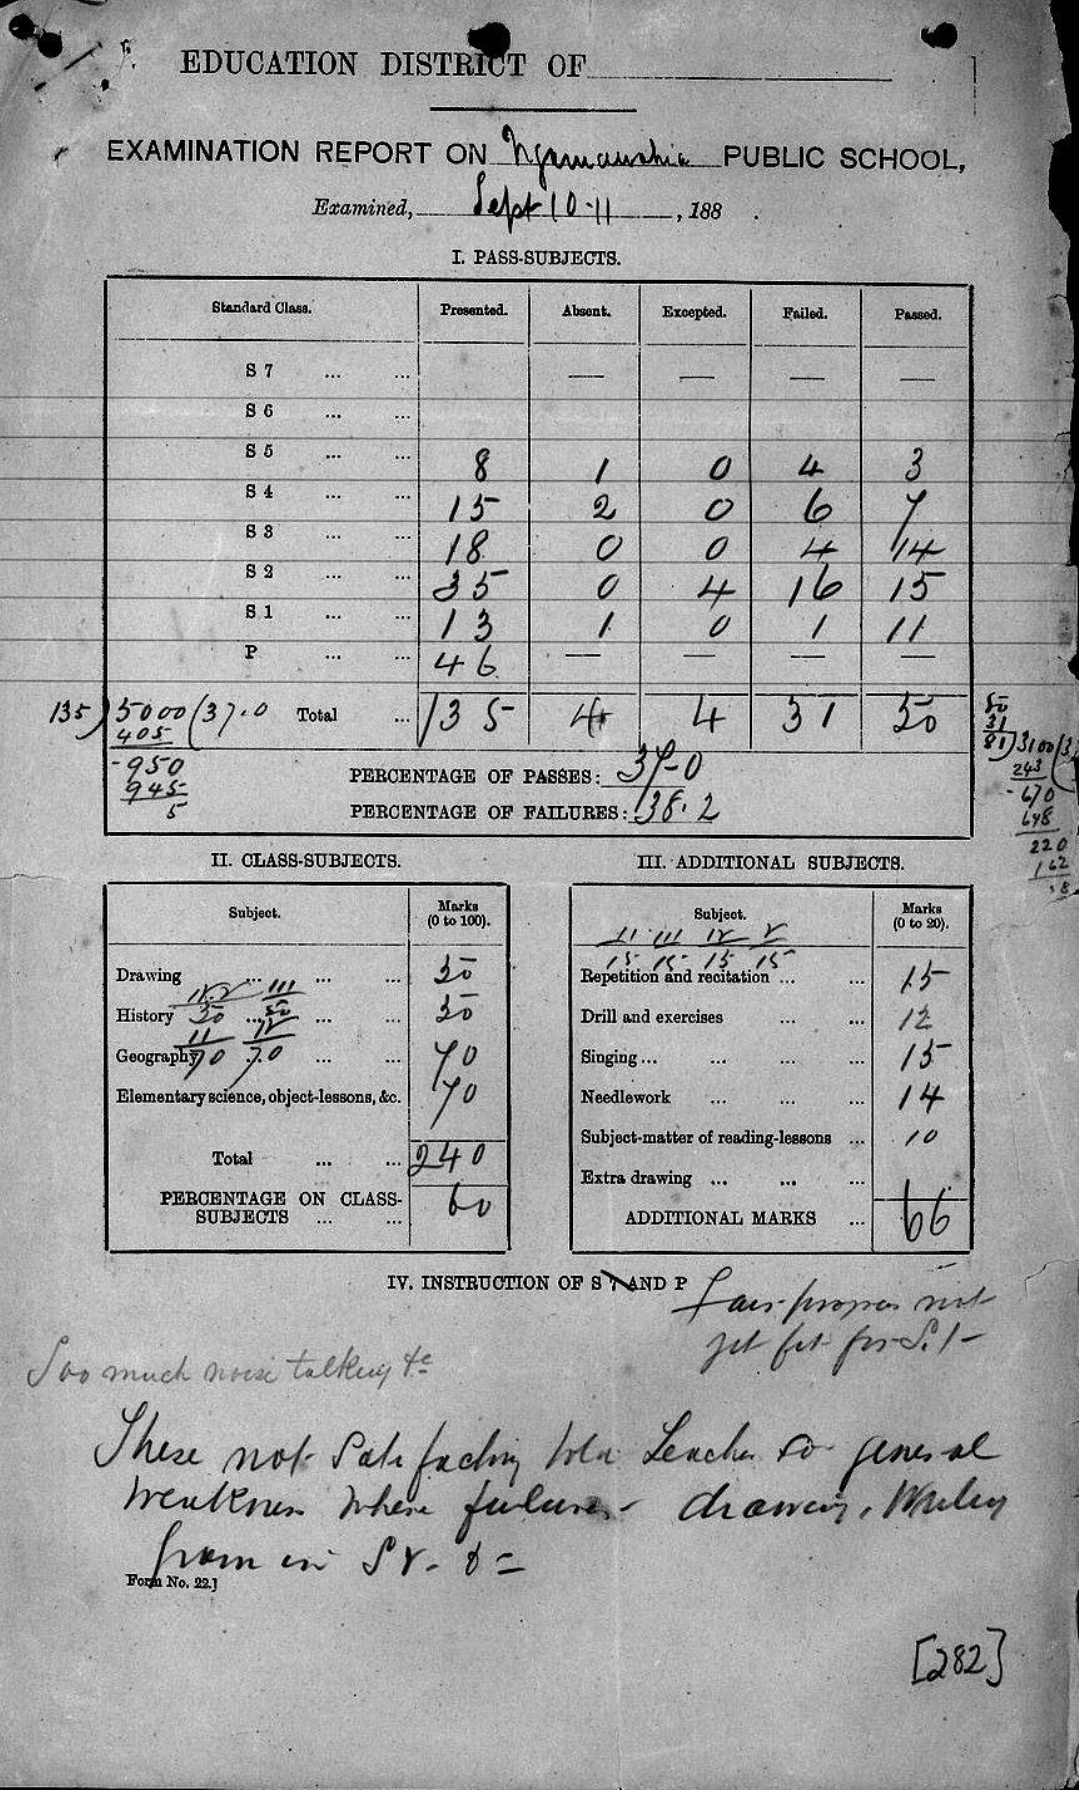 EDUCATION DISTRICT OF
EXAMINATION REPORT ON Ngaruawahia PUBLIC SCHOOL,
Examined, Sept 10-11, 188 .
I. PASS-SUBJECTS.
Standard Class. Presented. Absent. Excepted. Failed. Passed.
S 7 ... ... — — — —
S 6 ... ...
S 5 ... ... 8 1 0 4 3
S 4 ... ... 15 2 0 6 7
S 3 ... ... 18 0 0 4 14
S 2 ... ... 35 0 4 16 15
S 1 ... ... 13 1 0 1 11
P ... ... 46 — — — —
135) 5000 (37.0 Total ... 135 4 4 31 50
405
950
945
5
PERCENTAGE OF PASSES: 37-0
PERCENTAGE OF FAILURES: 38.2
50
31
81) 3100 (3
243
670
648
220
162
II. CLASS-SUBJECTS.
Subject. Marks (0 to 100).
Drawing ... ... ... 50
III
History 50 ... 50 ... ... 50
Geography 70 70 ... ... 70
Elementary science, object-lessons, &c. 70
Total ... ... 240
PERCENTAGE ON CLASS-
SUBJECTS ... ... 60
III. ADDITIONAL SUBJECTS.
Subject. Marks (0 to 20).
II III IV V
15 15 15 15
Repetition and recitation ... ... 15
Drill and exercises ... ... 12
Singing ... ... ... ... 15
Needlework ... ... ... 14
Subject-matter of reading-lessons ... 10
Extra drawing ... ... ...
ADDITIONAL MARKS ... 66
IV. INSTRUCTION OF S 7 AND P
Fair progress not
yet fit for S.1 –
Too much noise talking &c
These not Satisfactory told Teacher so general
weakness where failures - drawing,
from in
Form No. 22.]
[282]